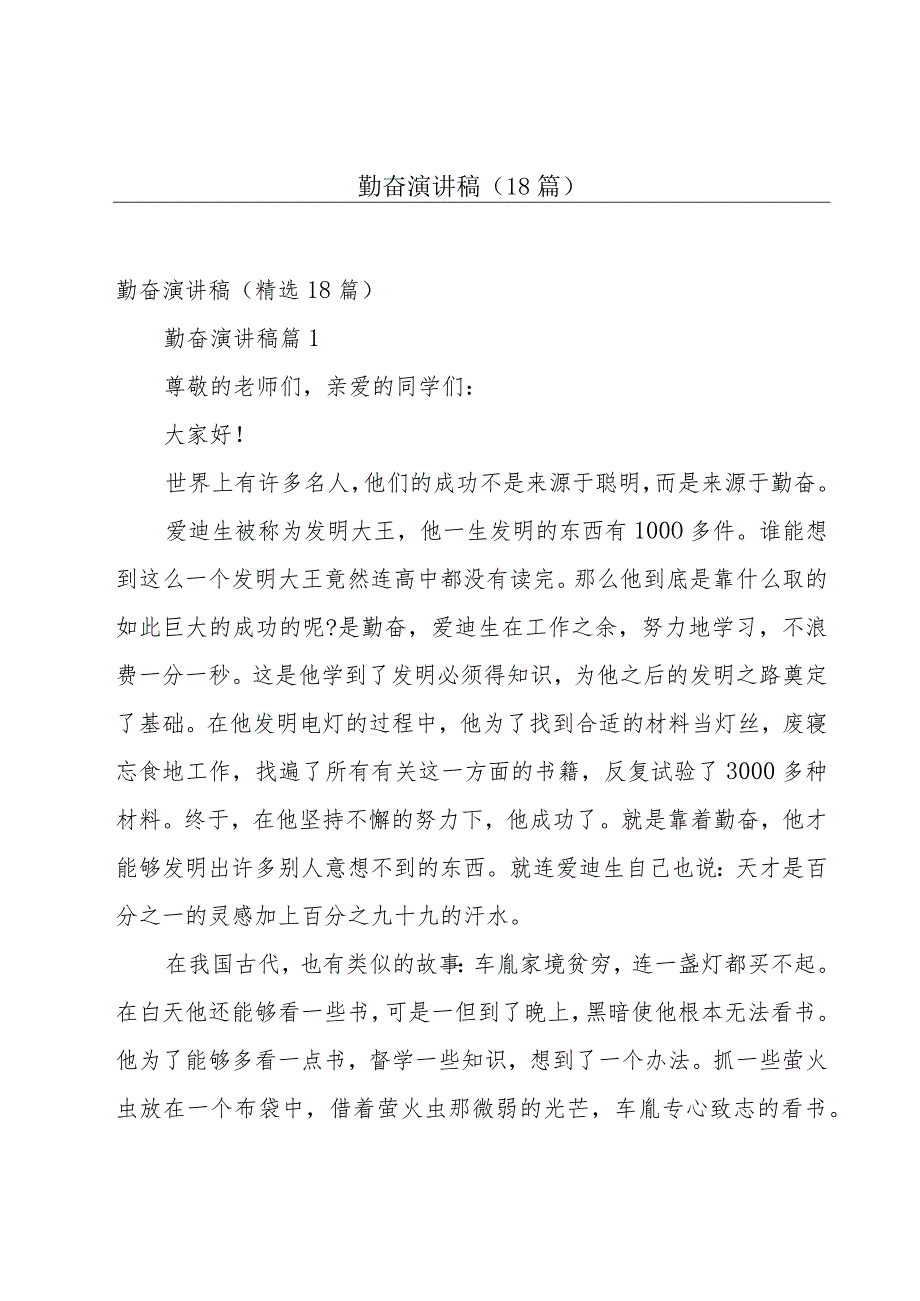 勤奋演讲稿（18 篇）
勤奋演讲稿（精选 18 篇）
勤奋演讲稿篇 1
尊敬的老师们，亲爱的同学们：
大家好！
世界上有许多名人，他们的成功不是来源于聪明，而是来源于勤奋。
爱迪生被称为发明大王，他一生发明的东西有 1000 多件。谁能想
到这么一个发明大王竟然连高中都没有读完。那么他到底是靠什么取的
如此巨大的成功的呢?是勤奋，爱迪生在工作之余，努力地学习，不浪
费一分一秒。这是他学到了发明必须得知识，为他之后的发明之路奠定
了基础。在他发明电灯的过程中，他为了找到合适的材料当灯丝，废寝
忘食地工作，找遍了所有有关这一方面的书籍，反复试验了 3000 多种
材料。终于，在他坚持不懈的努力下，他成功了。就是靠着勤奋，他才
能够发明出许多别人意想不到的东西。就连爱迪生自己也说：天才是百
分之一的灵感加上百分之九十九的汗水。
在我国古代，也有类似的故事：车胤家境贫穷，连一盏灯都买不起。
在白天他还能够看一些书，可是一但到了晚上，黑暗使他根本无法看书。
他为了能够多看一点书，督学一些知识，想到了一个办法。抓一些萤火
虫放在一个布袋中，借着萤火虫那微弱的光芒，车胤专心致志的看书。